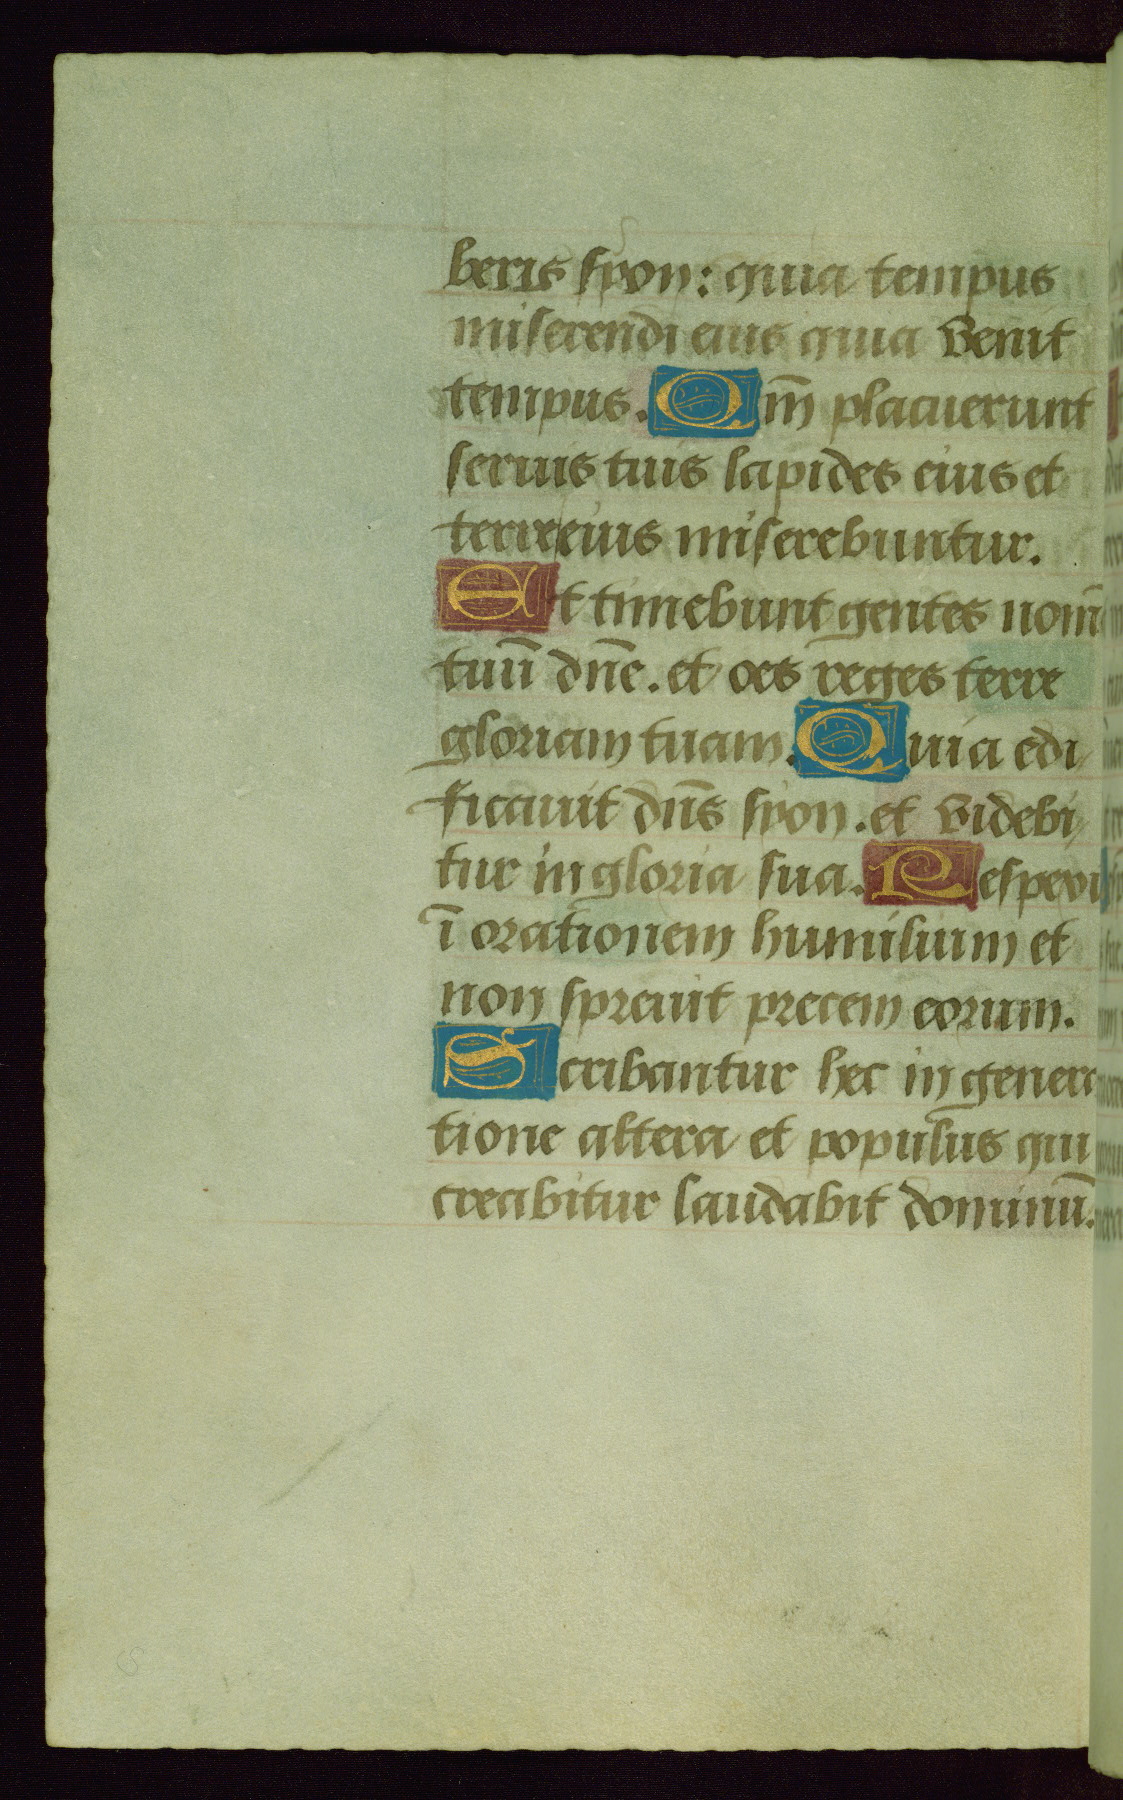 beris syon: quia tempus
miserendi eius quia venit
tempus. Qm̄ placuerunt
seruis tuis lapides eius et
terre eius miserebuntur.
Et timebunt gentes nom̄
tuū dn̄e. et oēs reges terre
gloriam tuam. Quia edi
ficauit dn̄s syon. et videbi
tur in gloria sua. Respexi
ī orationem humilium et
non spreuit precem eorum.
Scribantur hec in genera
tione altera et populus qui
creabitur laudabit dominū.